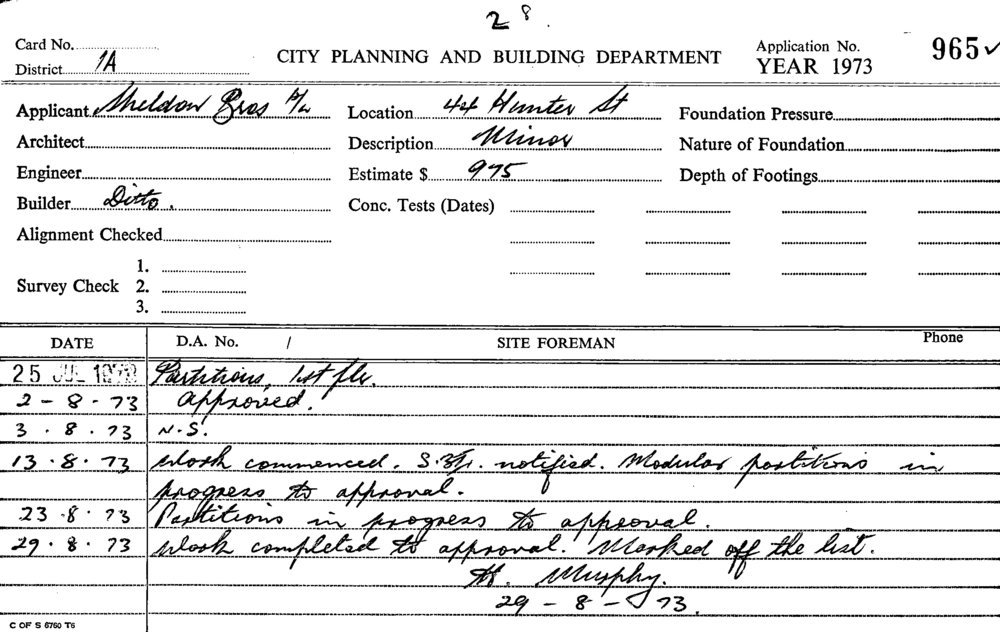 28.
Card No.
District 1A
CITY PLANNING AND BUILDING DEPARTMENT
Application No. 965✓
YEAR 1973
Applicant Sheldon Bros P/L
Location 44 Hunter St
Foundation Pressure
Architect
Description Minor
Nature of Foundation
Engineer
Estimate $ 975
Depth of Footings
Builder Ditto.
Conc. Tests (Dates)
Alignment Checked
Survey Check 1.
2.
3.
DATE D.A. No. / SITE FOREMAN Phone
25 JUL 1973 Partitions, 1st flr.
2-8-73 Approved.
3.8.73 N.S.
13.8.73 Work commenced. notified. Modular partitions in
progress to approval.
23.8.73 Partitions in progress to approval.
29.8.73 Work completed to approval. Marked off the list.
Murphy.
29-8-73.
C OF S 6760 T6